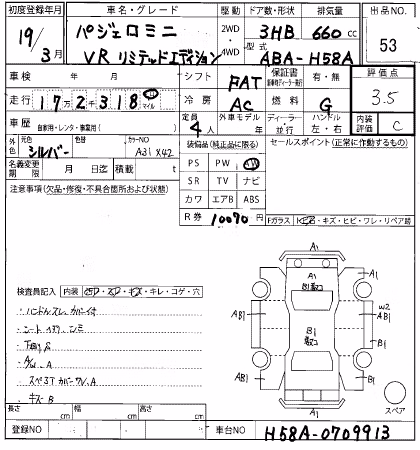 初度登録年月 車名・グレード 駆動 ドア数・形状 排気量 出品NO.
19年 3月 パジェロミニ 2WD 3HB 660cc 53
VR リミテッドエディション 4WD 型式 ABA-H58A
車検 年 月 シフト FAT 保証書 有・無 評価点
走行 17万2千318 マイル 冷房 AC 燃料 G 3.5
車歴 自家用・レンタ・事業用( ) 定員 4人 外車モデル 年 ディーラー・並行 ハンドル 左・右 内装評価 C
外色 元色 シルバー 色替 カラーNO A31 X42 装備品(純正品に限る) セールスポイント(正常に作動するもの)
名義変更期限 月 日迄 積載量 t PS PW AW
SR TV ナビ
注意事項(欠品・修復・不具合箇所および状態) カワ エアB ABS
R券 10070円 Fガラス ヒビ・ワレ・リペア跡
A1
A1 A1
B1
AB1 W2
AB1
B1 B1
AB1 B1
A1
スペア
検査員記入 内装 キレ・コゲ・穴
・ハンドルスレ
・シート
・下回りS
・A/W A
・スペアT カバー A
・キズ B
長さ cm 幅 cm 高さ cm
登録NO 車台NO H58A-0709913